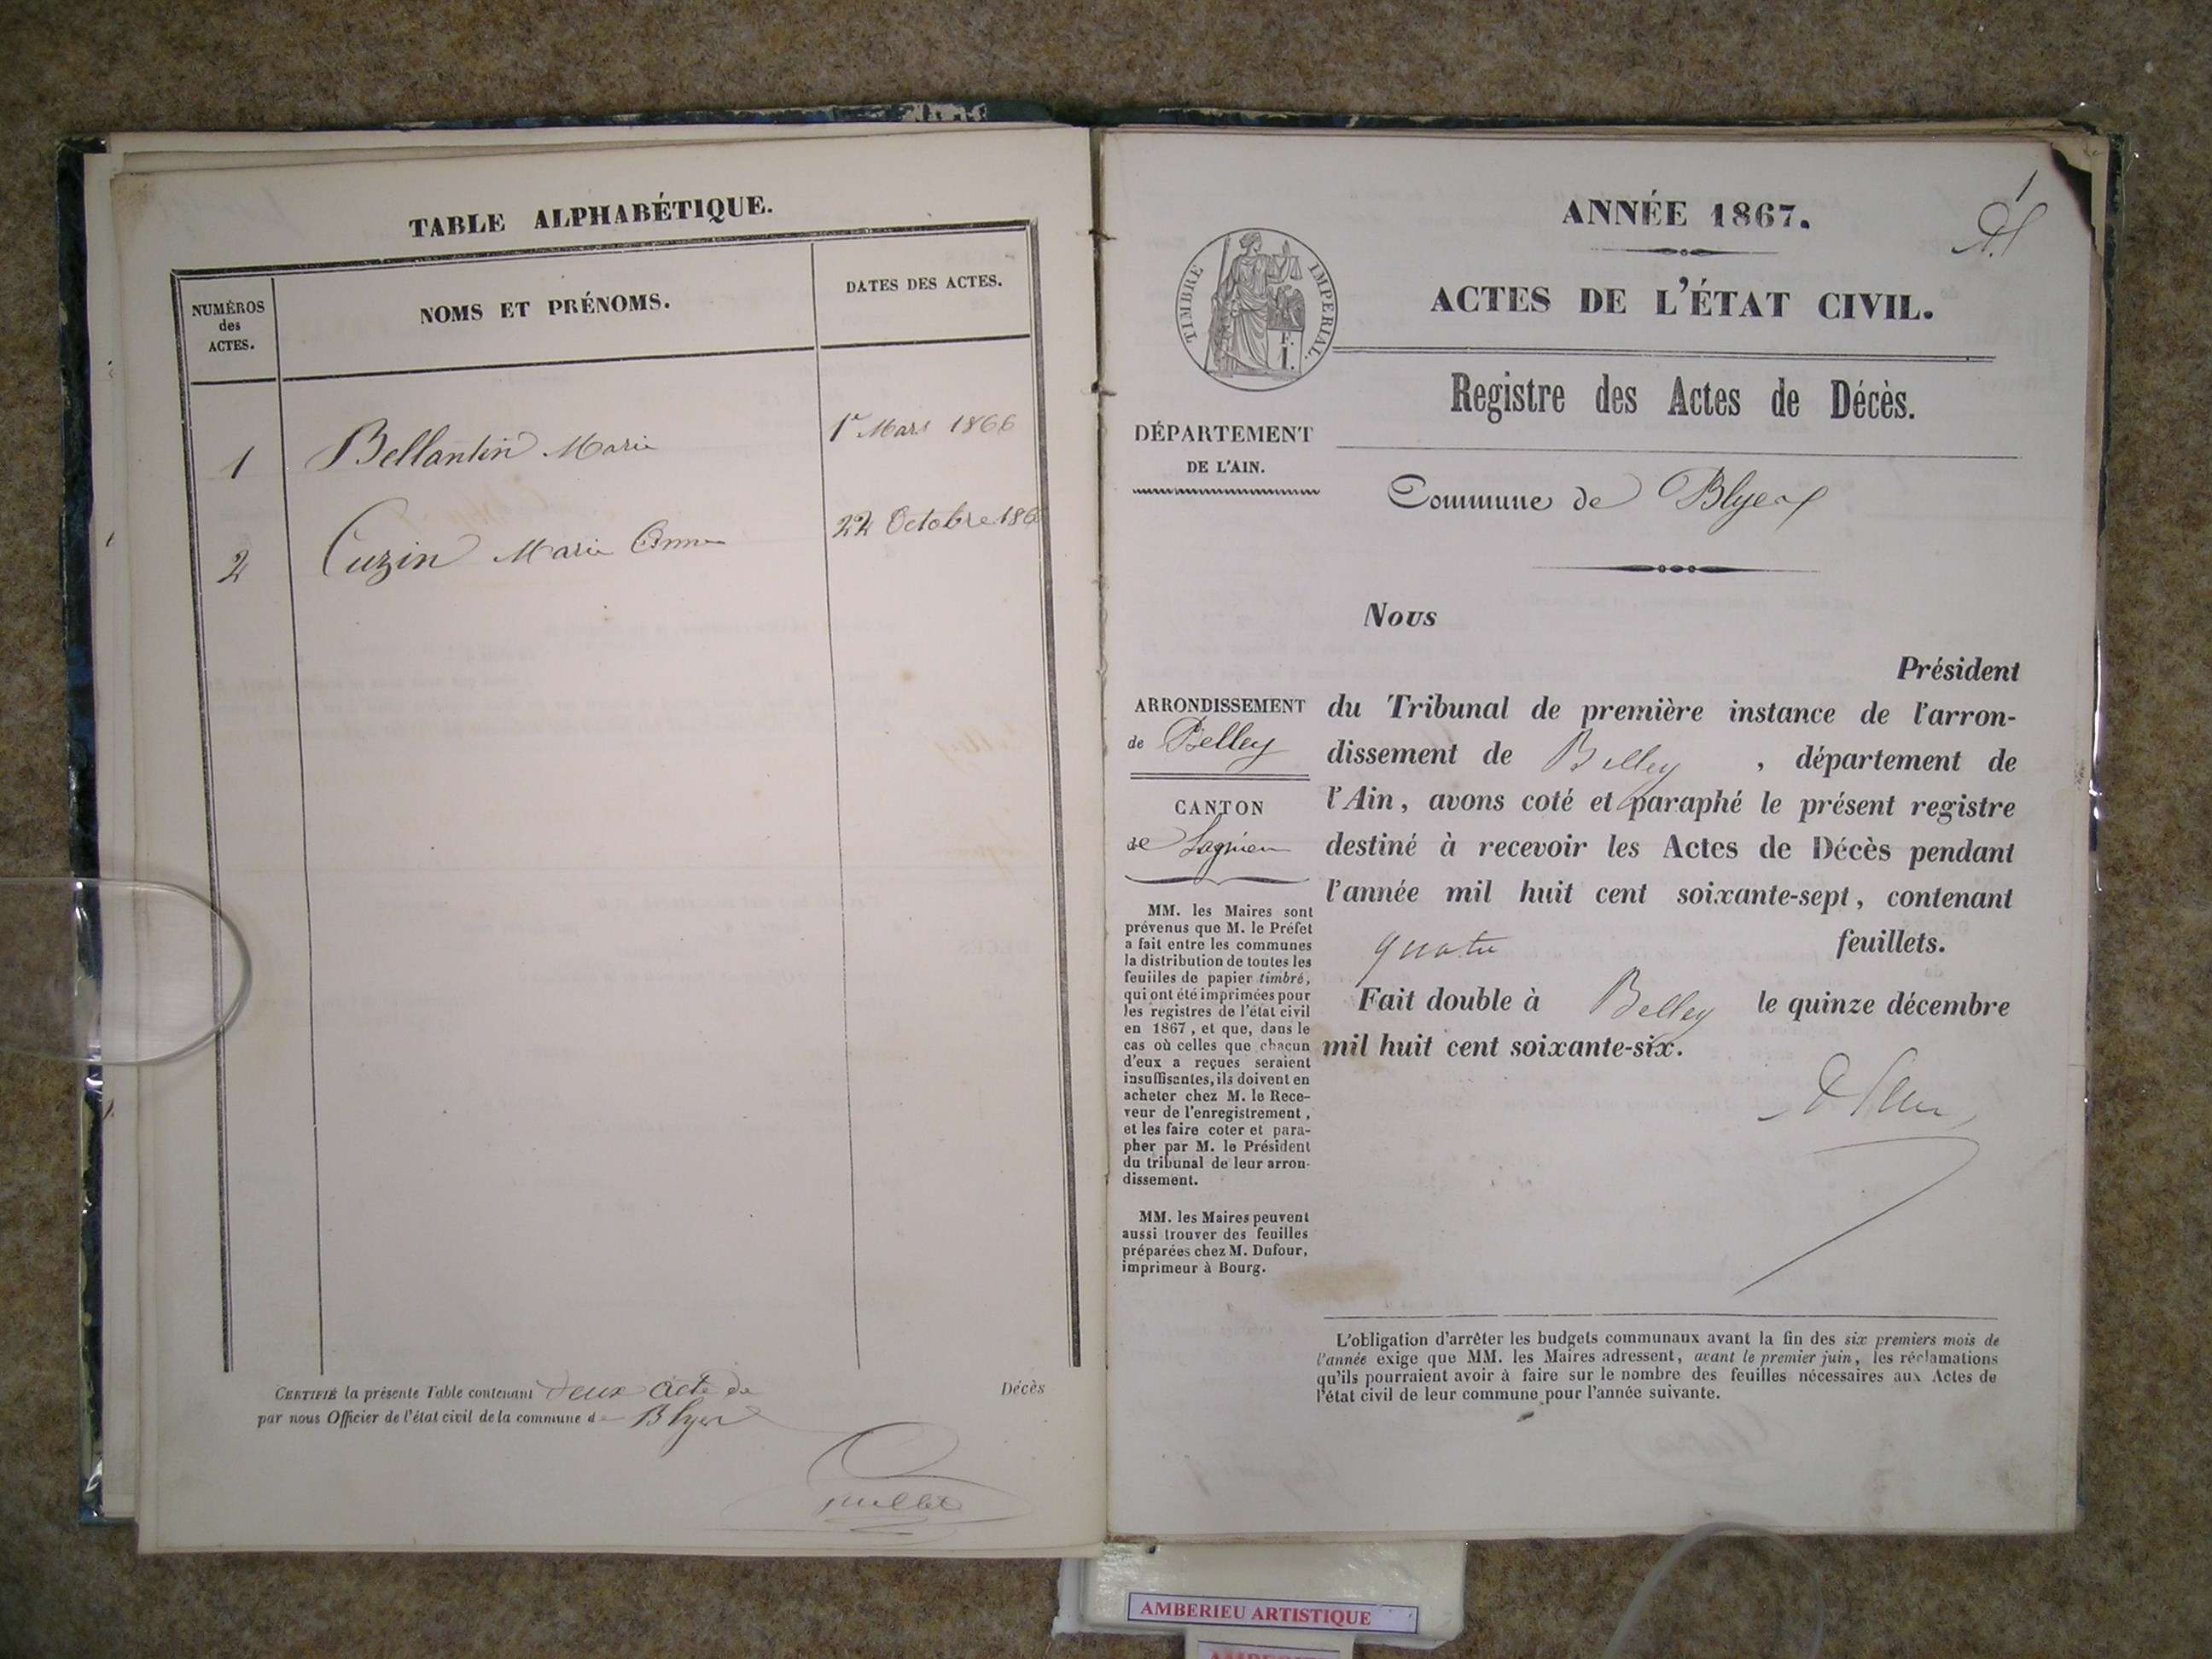 TABLE ALPHABÉTIQUE.
NUMÉROS
des
ACTES.
NOMS ET PRÉNOMS.
DATES DES ACTES.
1 Bellantin Marie 1r Mars 1866
2 Cuzin Marie Anne 22 Octobre 186
CERTIFIÉ la présente Table contenant deux acte de Décès
par nous Officier de l'état civil de la commune de Blyes
1
ANNÉE 1867.
ACTES DE L'ÉTAT CIVIL.
TIMBRE IMPERIAL.
F.
I.
Registre des Actes de Décès.
DÉPARTEMENT
DE L'AIN.
Commune de Blyes
Nous
Président
du Tribunal de première instance de l'arron-
dissement de Belley , département de
l'Ain, avons coté et paraphé le présent registre
destiné à recevoir les Actes de Décès pendant
l'année mil huit cent soixante-sept, contenant
quatre feuillets.
Fait double à Belley le quinze décembre
mil huit cent soixante-six.
ARRONDISSEMENT
de Belley
CANTON
de Lagnieu
MM. les Maires sont
prévenus que M. le Préfet
a fait entre les communes
la distribution de toutes les
feuilles de papier timbré,
qui ont été imprimées pour
les registres de l'état civil
en 1867, et que, dans le
cas où celles que chacun
d'eux a reçues seraient
insuffisantes, ils doivent en
acheter chez M. le Rece-
veur de l'enregistrement,
et les faire coter et para-
pher par M. le Président
du tribunal de leur arron-
dissement.
MM. les Maires peuvent
aussi trouver des feuilles
préparées chez M. Dufour,
imprimeur à Bourg.
L'obligation d'arrêter les budgets communaux avant la fin des six premiers mois de
l'année exige que MM. les Maires adressent, avant le premier juin, les réclamations
qu'ils pourraient avoir à faire sur le nombre des feuilles nécessaires aux Actes de
l'état civil de leur commune pour l'année suivante.
AMBERIEU ARTISTIQUE